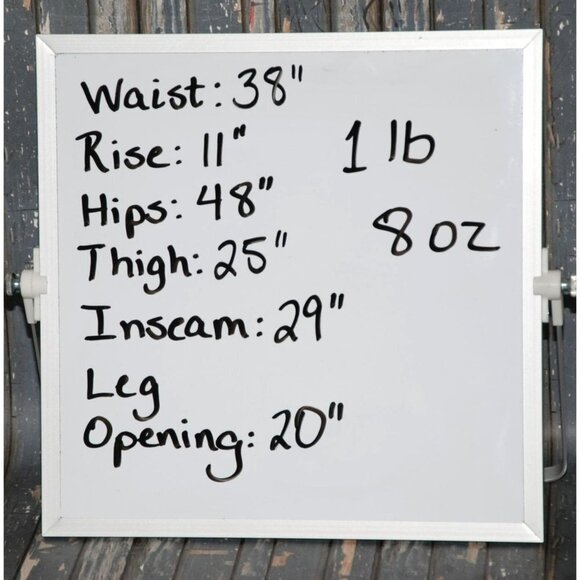 Waist: 38"
Rise: 11"
Hips: 48"
Thigh: 25"
Inseam: 29"
Leg
Opening: 20"
1 lb
8 oz